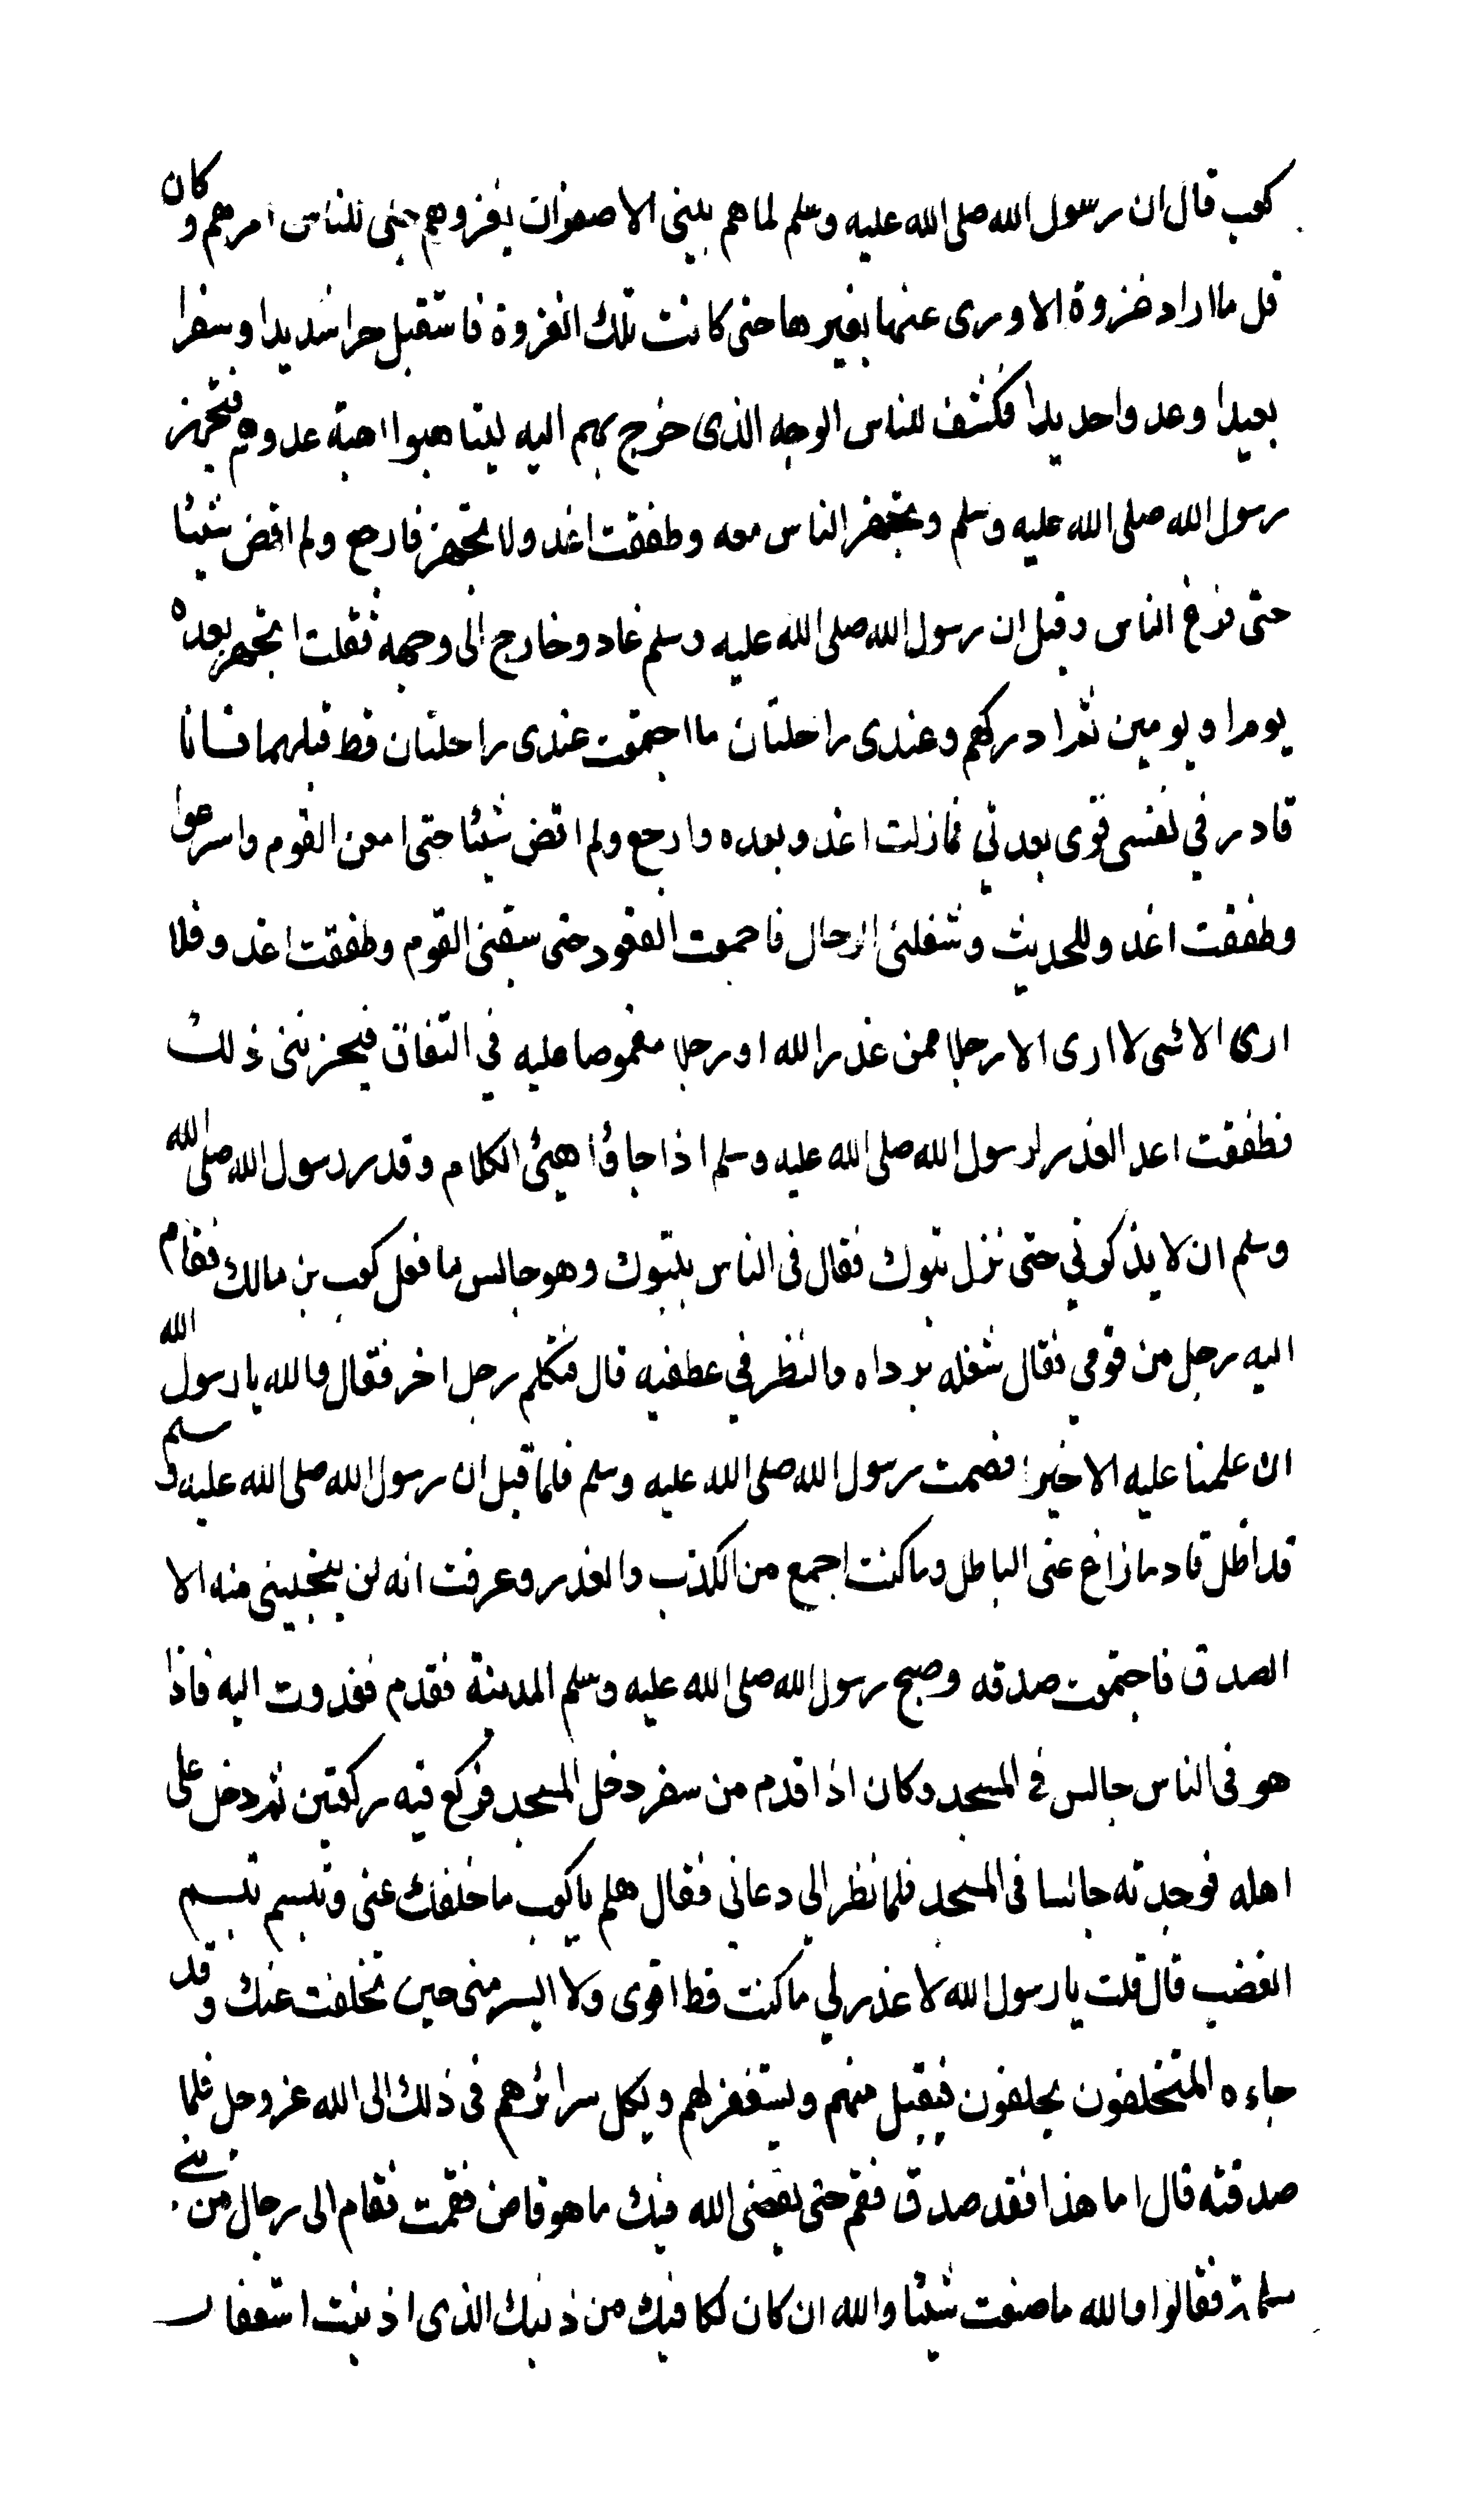 كعب قال ان رسول الله صلى الله عليه وسلم لما هم ببنى الاصفر ان يغزوهم جلى للناس امرهم وكان
قل ما اراد غزوة الا ورى عنها بغيرها حتى كانت تلك الغزوة فاستقبل حرا شديدا وسفرا
بعيدا وعدوا حديدا فكشف للناس الوجه الذى خرج بهم اليه ليتاهبوا اهبة عدوهم فتجهز
رسول الله صلى الله عليه وسلم وتجهز الناس معه وطفقت اغد ولا تجهز فارجع ولم اقض شيئا
حتى فرغ الناس وقيل ان رسول الله صلى الله عليه وسلم غاد وخارج الى وجهه فقلت اتجهز بعده
يوما او يومين ثم ادركهم وعندى راحلتان ما اجتمعت عندى راحلتان قط قبلهما فانا
قادر في نفسى قوى بعدتي فمازلت اغدو بعده وارجع ولم اقض شيئا حتى امعن القوم واسرعوا
وطفقت اغدو للحديث وشغلنى الرحال فاجمعت القعود حتى سبقنى القوم وطفقت اغدو فلا
ارى الاشى لا ارى الا رجلا ممن عذر الله او رجلا مغموصا عليه في النفاق فيحزننى ذلك
فطفقت اعد العذر لرسول الله صلى الله عليه وسلم اذا جاؤا اهيئ الكلام وقدر رسول الله صلى الله
وسلم ان لا يذكرني حتى نزل تبوك فقال فى الناس بتبوك وهو جالس ما فعل كعب بن مالك فقام
اليه رجل من قومي فقال شغله برداه والنظر في عطفيه قال فتكلم رجل اخر فقال والله يا رسول الله
ان علمنا عليه الا خيرا فصمت رسول الله صلى الله عليه وسلم فلما قيل ان رسول الله صلى الله عليه وسلم
قد اظل قادما زاغ عنى الباطل وما كنت اجمع من الكذب والعذر وعرفت انه لن ينجينى منه الا
الصدق فاجتمعت صدقه وصبح رسول الله صلى الله عليه وسلم المدينة فقدم فغدوت اليه فاذا
هو فى الناس جالس فى المسجد وكان اذا قدم من سفر دخل المسجد فركع فيه ركعتين ثم دخل على
اهله فوجدته جالسا فى المسجد فلما نظر الي دعاني فقال هلم يا كعب ما خلفك عنى وتبسم تبسم
الغضب قال قلت يا رسول الله لا عذر لي ما كنت قط اقوى ولا ايسر منى حين تخلفت عنك وقد
جاءه المتخلفون يحلفون فيقبل منهم ويستغفر لهم ويكل سرائرهم فى ذلك الى الله عز وجل فلما
صدقته قال اما هذا فقد صدق فقم حتى يقضى الله فيك ما هو قاض فقمت فقام الى رجال من بنى
سلمة فقالوا والله ما صنعت شيئا والله ان كان لكافيك من ذنبك الذى اذنبت استغفار